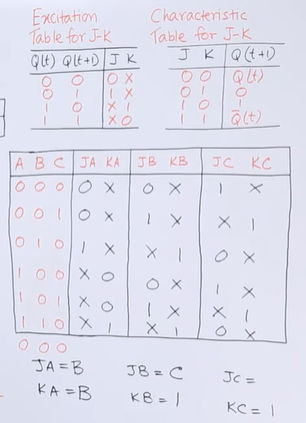 Excitation
Table for J-K
Q(t) Q(t+1) J K
0 0 0 X
0 1 1 X
1 0 X 1
1 1 X 0
Characteristic
Table for J-K
J K Q(t+1)
0 0 Q(t)
0 1 0
1 0 1
1 1 Q̅(t)
A B C JA KA JB KB JC KC
0 0 0 0 X 0 X 1 X
0 0 1 0 X 1 X X 1
0 1 0 1 X X 1 0 X
1 0 0 X 0 0 X 1 X
1 0 1 X 0 1 X X 1
1 1 0 X 1 X 1 0 X
0 0 0
JA = B JB = C JC =
KA = B KB = 1 KC = 1